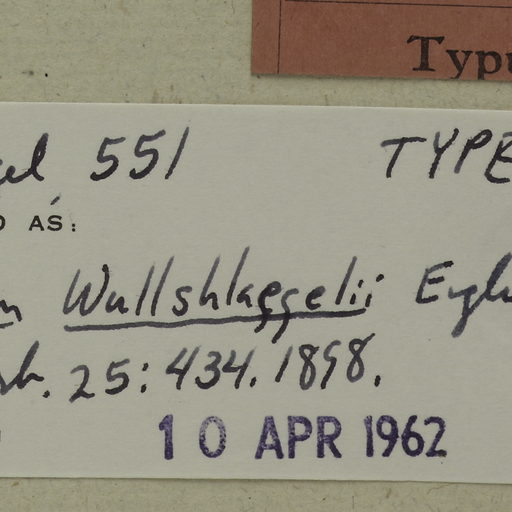 Typu
el 551 TYPE
D AS:
Wullshlaegelii Engl
25: 434. 1898.
10 APR 1962